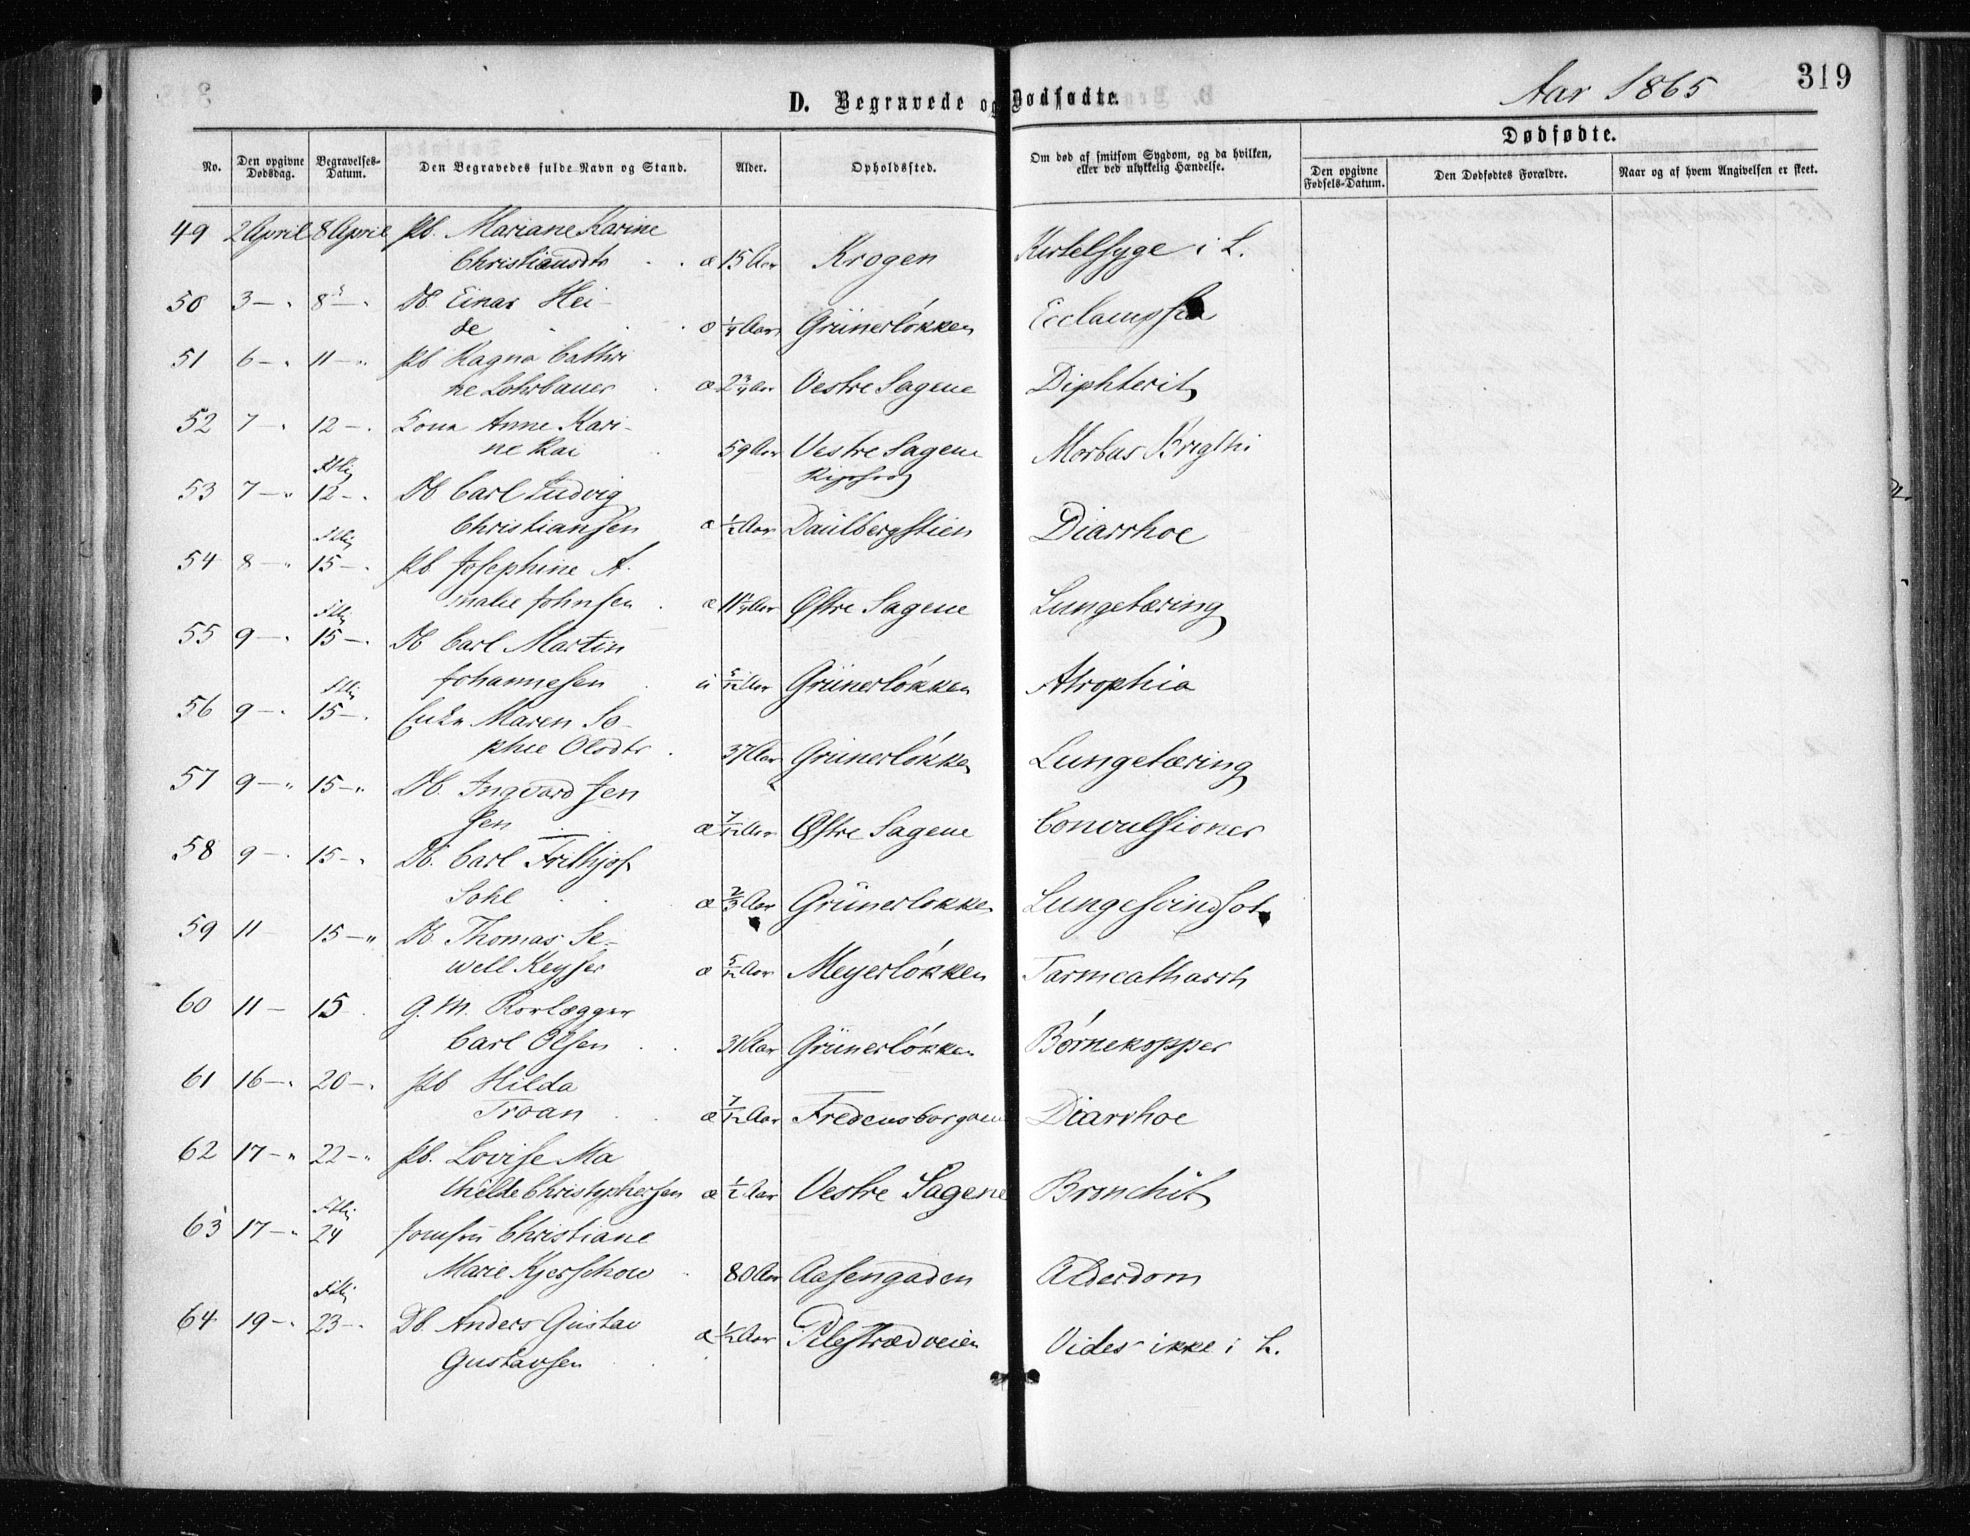 D. Begravede og Dødfødte.
Aar 1865
319
No.
Den opgivne Dødsdag.
Begravelses-Datum.
Den Begravedes fulde Navn og Stand.
Alder.
Opholdssted.
Om død af smitsom Sygdom, og da hvilken, eller ved ulykkelig Hændelse.
Dødfødte.
Den opgivne Fødsels-Datum.
Den Dødfødtes Forældre.
Naar og af hvem Angivelsen er skeet.
49 2 April 8 April Pb. Mariane Karine
Christiansdtr. æ 15 Aar Krogen Kirtelsyge i L.
50 3 — " 8 — " Db. Einar Hei-
de æ 1/4 Aar Grünerløkken Ecclampsia
51 6 — " 11 — " Pb Ragna Cathri
ne Lohrbauer æ 2 3/4 Aar Vestre Sagene Diphterit
52 7 — " 12 — " Kona Anne Kari-
ne Rai 59 Aar Vestre Sagene Morbus Brigthi
53 7 — " 12 — " Db Carl Ludvig
Christiansen æ 1/2 Aar Daulbergstien Diarrhoe
54 8 — " 15 — " Pb Josephine A.
malie Johnsen æ 11 1/4 Aar Østre Sagene Lungetæring
55 9 — " 15 — " Db Carl Martin
Johannesen æ 5/12 Aar Grünerløkken Atrophia
56 9 — " 15 — " Enke Maren So-
phie Olsdtr. 37 Aar Grünerløkken Lungetæring
57 9 — " 15 — " Db. Ingvard Jen
sen æ 7/12 Aar Østre Sagene Convulsioner
58 9 — " 15 — " Db. Carl Frithjof
Sohl æ 2/3 Aar Grünerløkken Lungesvindsot
59 11 15 — " Db Thomas Se-
well Keyser æ 5/12 Aar Meyerløkken Tarmcatharrh
60 11 — 15 G. M. Rorlægger
Carl Olsen 31 Aar Grünerløkken Børnekopper
61 16 — " 20 — " Pb Hilda
Troan æ 7/12 Aar Fredensborgveien Diarrhoe
62 17 — " 22 — " Pb. Lovise Ma
thilde Christophersen æ 1/2 Aar Vestre Sagene Bronchit
63 17 — " 24 Jomfru Christiane
Marie Kjerschow 80 Aar Aasengaden Alderdom
64 19 — " 23 — " Db. Anders Gustav
Gustavsen æ 1/2 Aar Pilestrædveien Vides ikke i L.